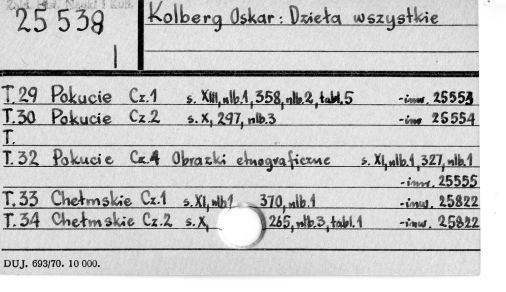 25 538
Kolberg Oskar: Dzieła wszystkie
T.29 Pokucie Cz.1 s. XIII, nlb.1, 358, nlb.2, tabl.5 -inw. 25553
T.30 Pokucie Cz.2 s. X, 297, nlb.3 -inw 25554
T.
T.32 Pokucie Cz.4 Obrazki etnograficzne s. XI, nlb.1, 327, nlb.1
-inw. 25555
T.33 Chełmskie Cz.1 s. XI, nlb1 370, nlb.1 -inw. 25822
T.34 Chełmskie Cz.2 s. X, 265, nlb.3, tabl.1 -inw. 25822
DUJ. 693/70. 10 000.